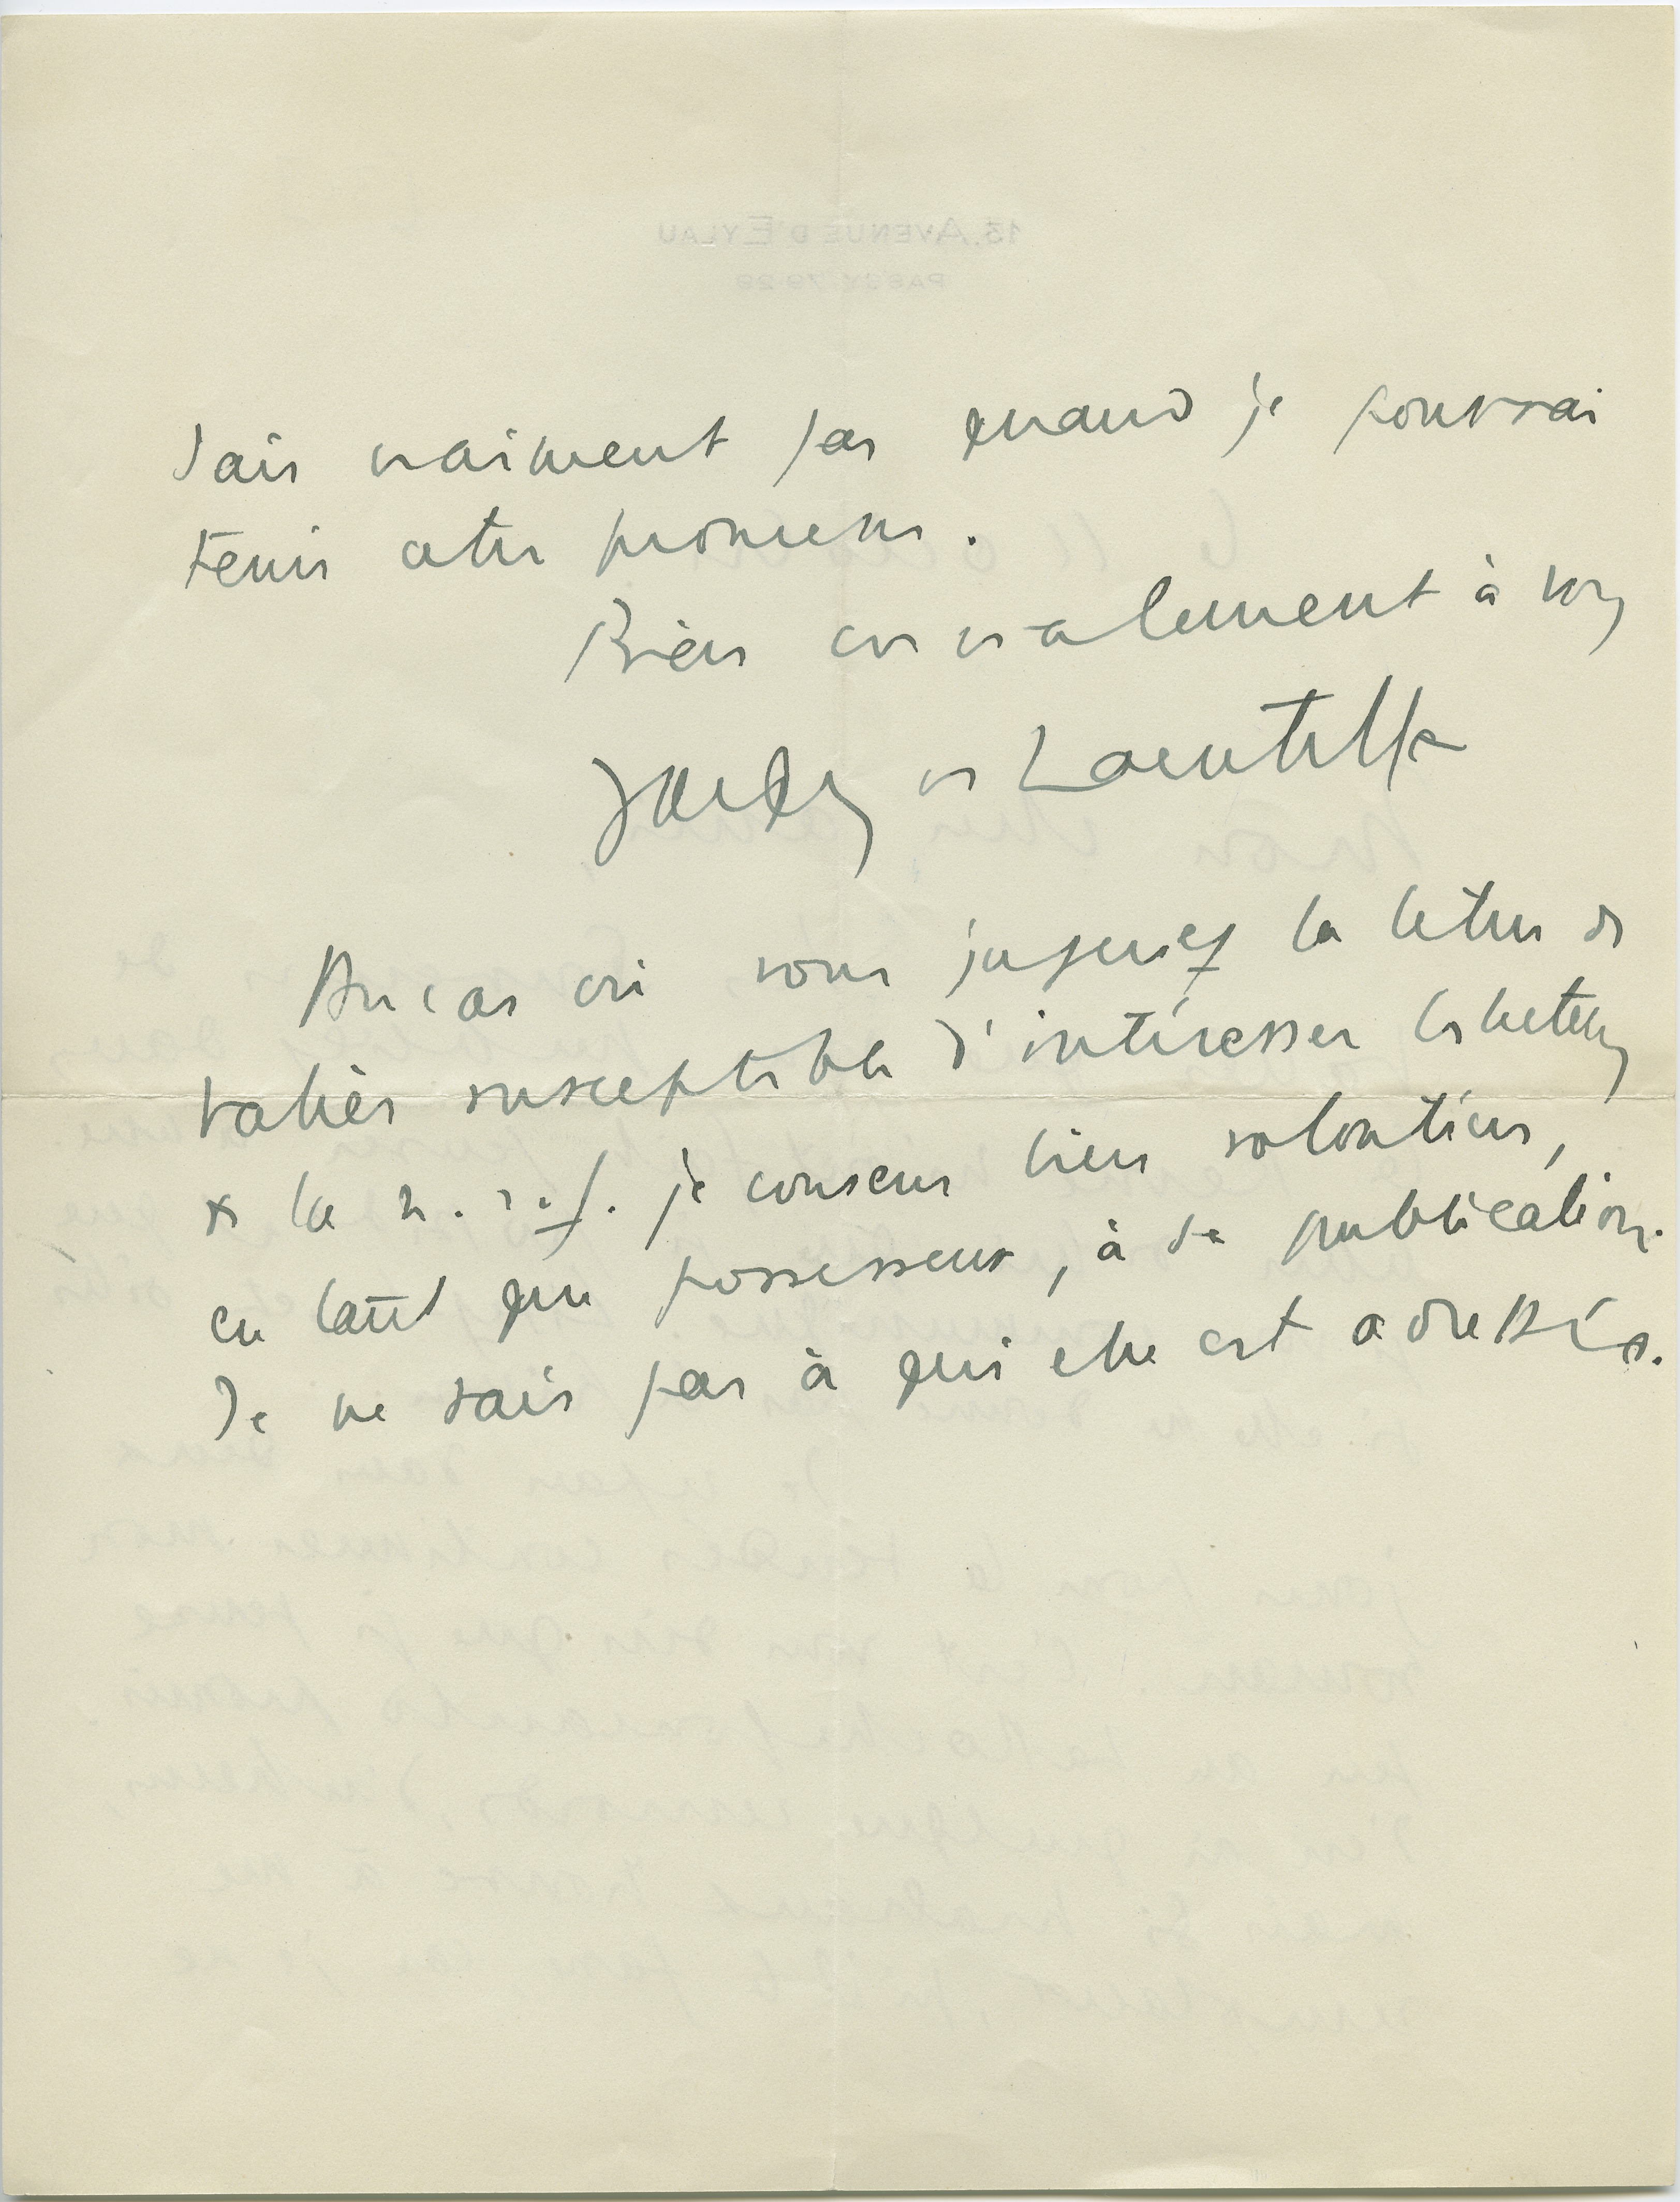 sais vraiment pas quand je pourrai
tenir cette promesse.
Bien cordialement à vous
Jacques de Lacretelle
Au cas où vous jugeriez la lettre de
Vallès susceptible d'intéresser les lecteurs
de la n.r.f. je consens bien volontiers,
en tant que possesseur, à sa publication.
Je ne sais pas à qui elle est adressée.
13, AVENUE D'EYLAU
PASSY 79-29